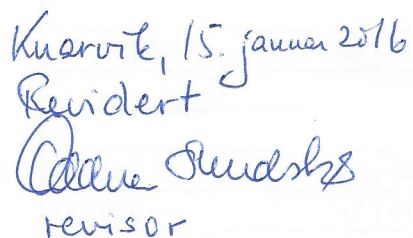 Knarvik, 15. januar 2016
Revidert
revisor